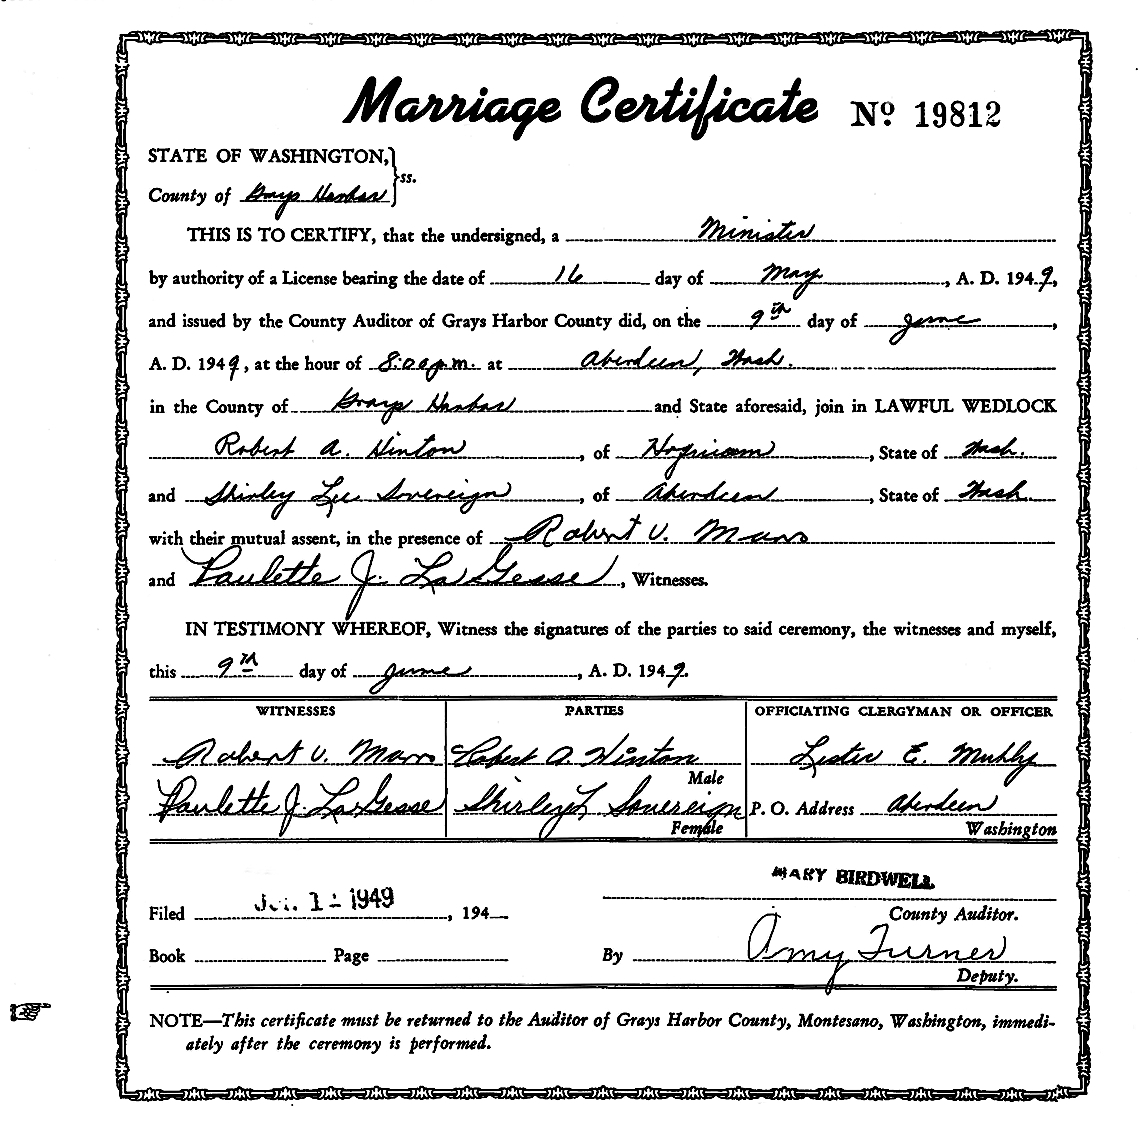 Marriage Certificate No 19812
STATE OF WASHINGTON,
ss.
County of Grays Harbor
THIS IS TO CERTIFY, that the undersigned, a Minister
by authority of a License bearing the date of 16 day of May, A. D. 1949,
and issued by the County Auditor of Grays Harbor County did, on the 9th day of June,
A. D. 1949, at the hour of 8:00 p.m. at Aberdeen, Wash.
in the County of Grays Harbor and State aforesaid, join in LAWFUL WEDLOCK
Robert A. Hinton, of Hoquiam, State of Wash.
and Shirley Lee Sovereign, of Aberdeen, State of Wash.
with their mutual assent, in the presence of Robert V.
and Paulette J. LaGesse, Witnesses.
IN TESTIMONY WHEREOF, Witness the signatures of the parties to said ceremony, the witnesses and myself,
this 9th day of June, A. D. 1949.
WITNESSES PARTIES OFFICIATING CLERGYMAN OR OFFICER
Robert V. Robert A. Hinton Lester E. Muhly
Male
Paulette J. LaGesse Shirley L. Sovereign P. O. Address Aberdeen
Female Washington
MARY BIRDWELL
Filed 1949, 194
County Auditor.
Book Page By Amy Turner
Deputy.
NOTE—This certificate must be returned to the Auditor of Grays Harbor County, Montesano, Washington, immedi-
ately after the ceremony is performed.